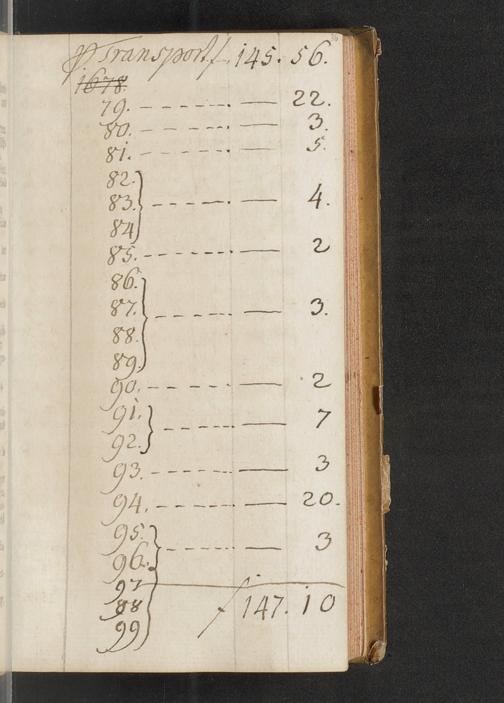 P Transport f 145. 56.
1678.
79. ------ — 22.
80. ------ — 3.
81. ------ — 5.
82.
83. ------ — 4.
84
85. ------ — 2
86.
87. ------ — 3.
88.
89.
90. ------ — 2
91.
92. ------ — 7
93. ------ — 3
94. ------ — 20.
95.
96. ------ — 3
97
88 f 147. 10
99